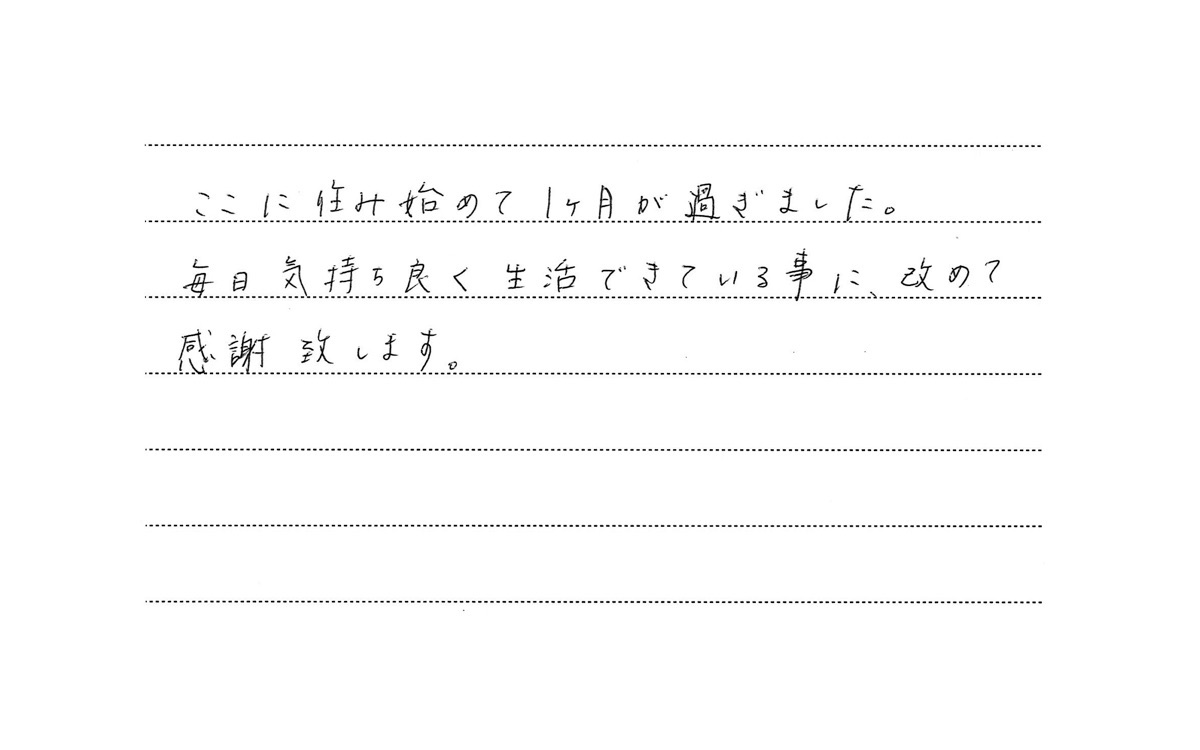 ここに住み始めて1ヶ月が過ぎました。
毎日気持ち良く生活できている事に、改めて
感謝致します。